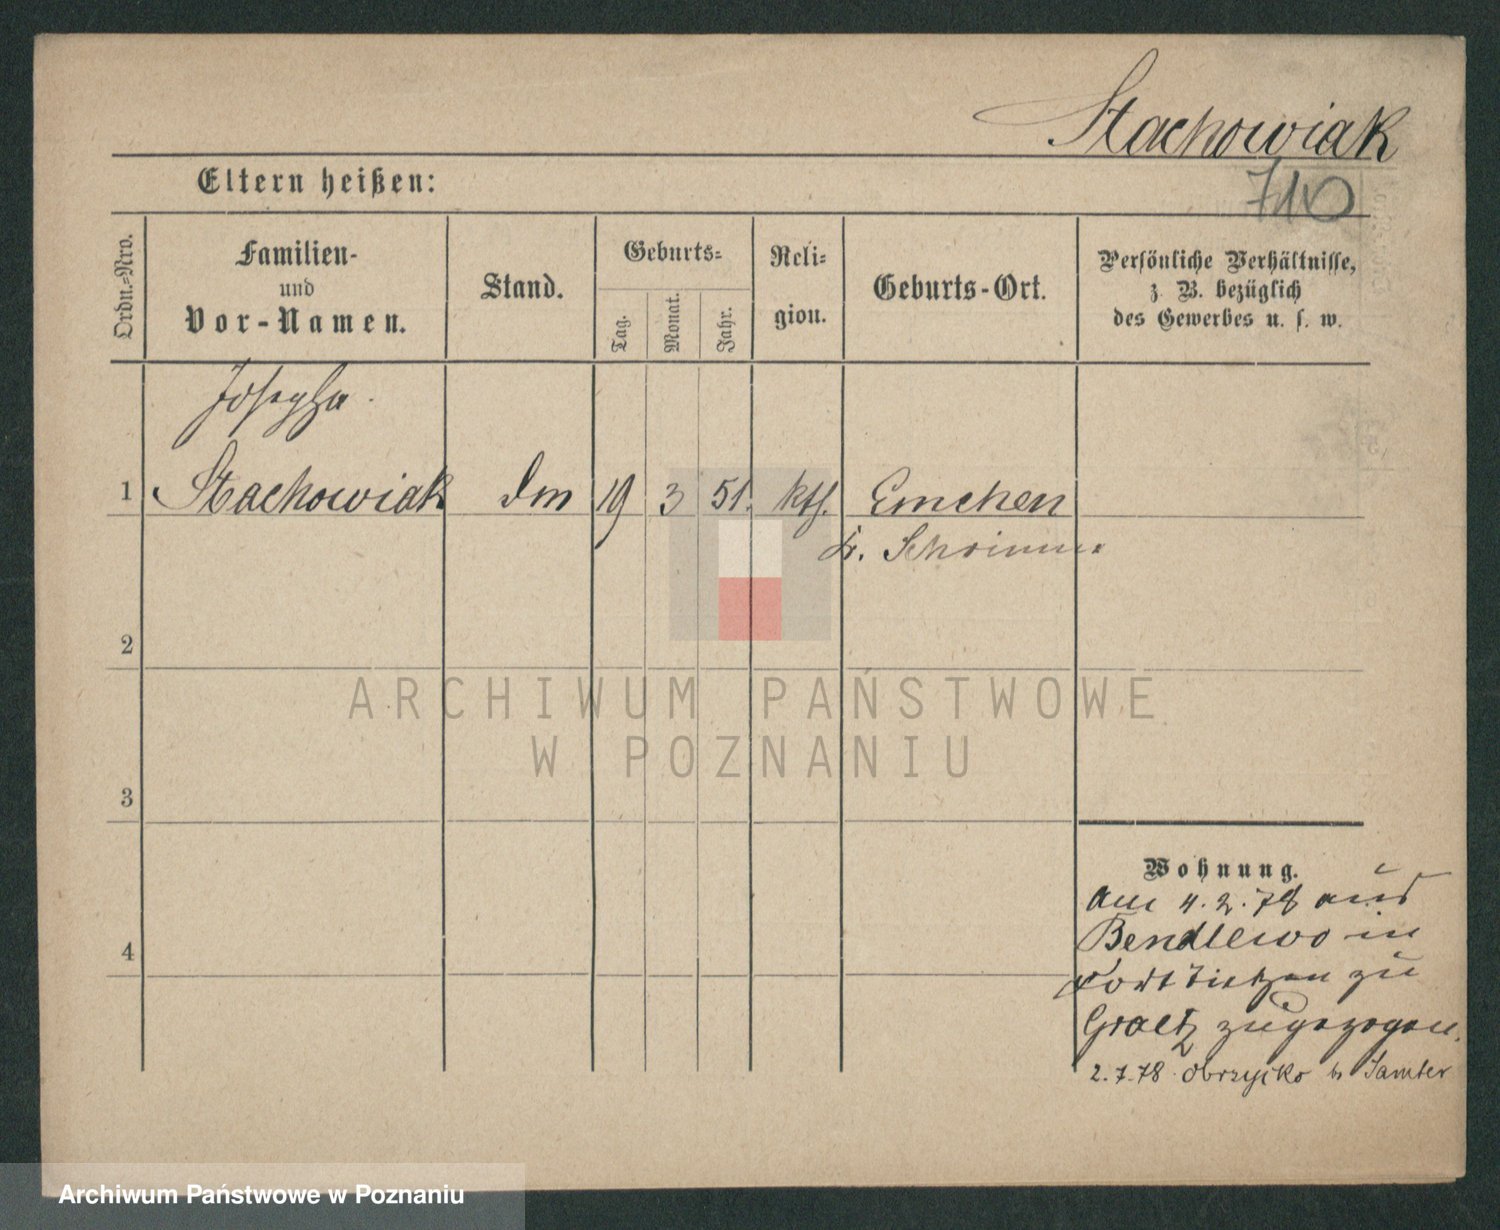 Stachowiak
710
Eltern heißen:
Ordn.-Nro.
Familien-
und
Vor-Namen.
Stand.
Geburts-
Tag.
Monat.
Jahr.
Reli-
gion.
Geburts-Ort.
Persönliche Verhältnisse,
z. B. bezüglich
des Gewerbes u. s. w.
Josepha
1 Stachowiak Dm 19 3 51. kth. Emchen
b. Schrimm
2
3
4
Wohnung.
Am 4.2.78 aus
Bendlewo in
Fort Tietzen zu
Graetz zugezogen.
2.7.78 Obrzycko b Samter
ARCHIWUM PAŃSTWOWE
W POZNANIU
Archiwum Państwowe w Poznaniu